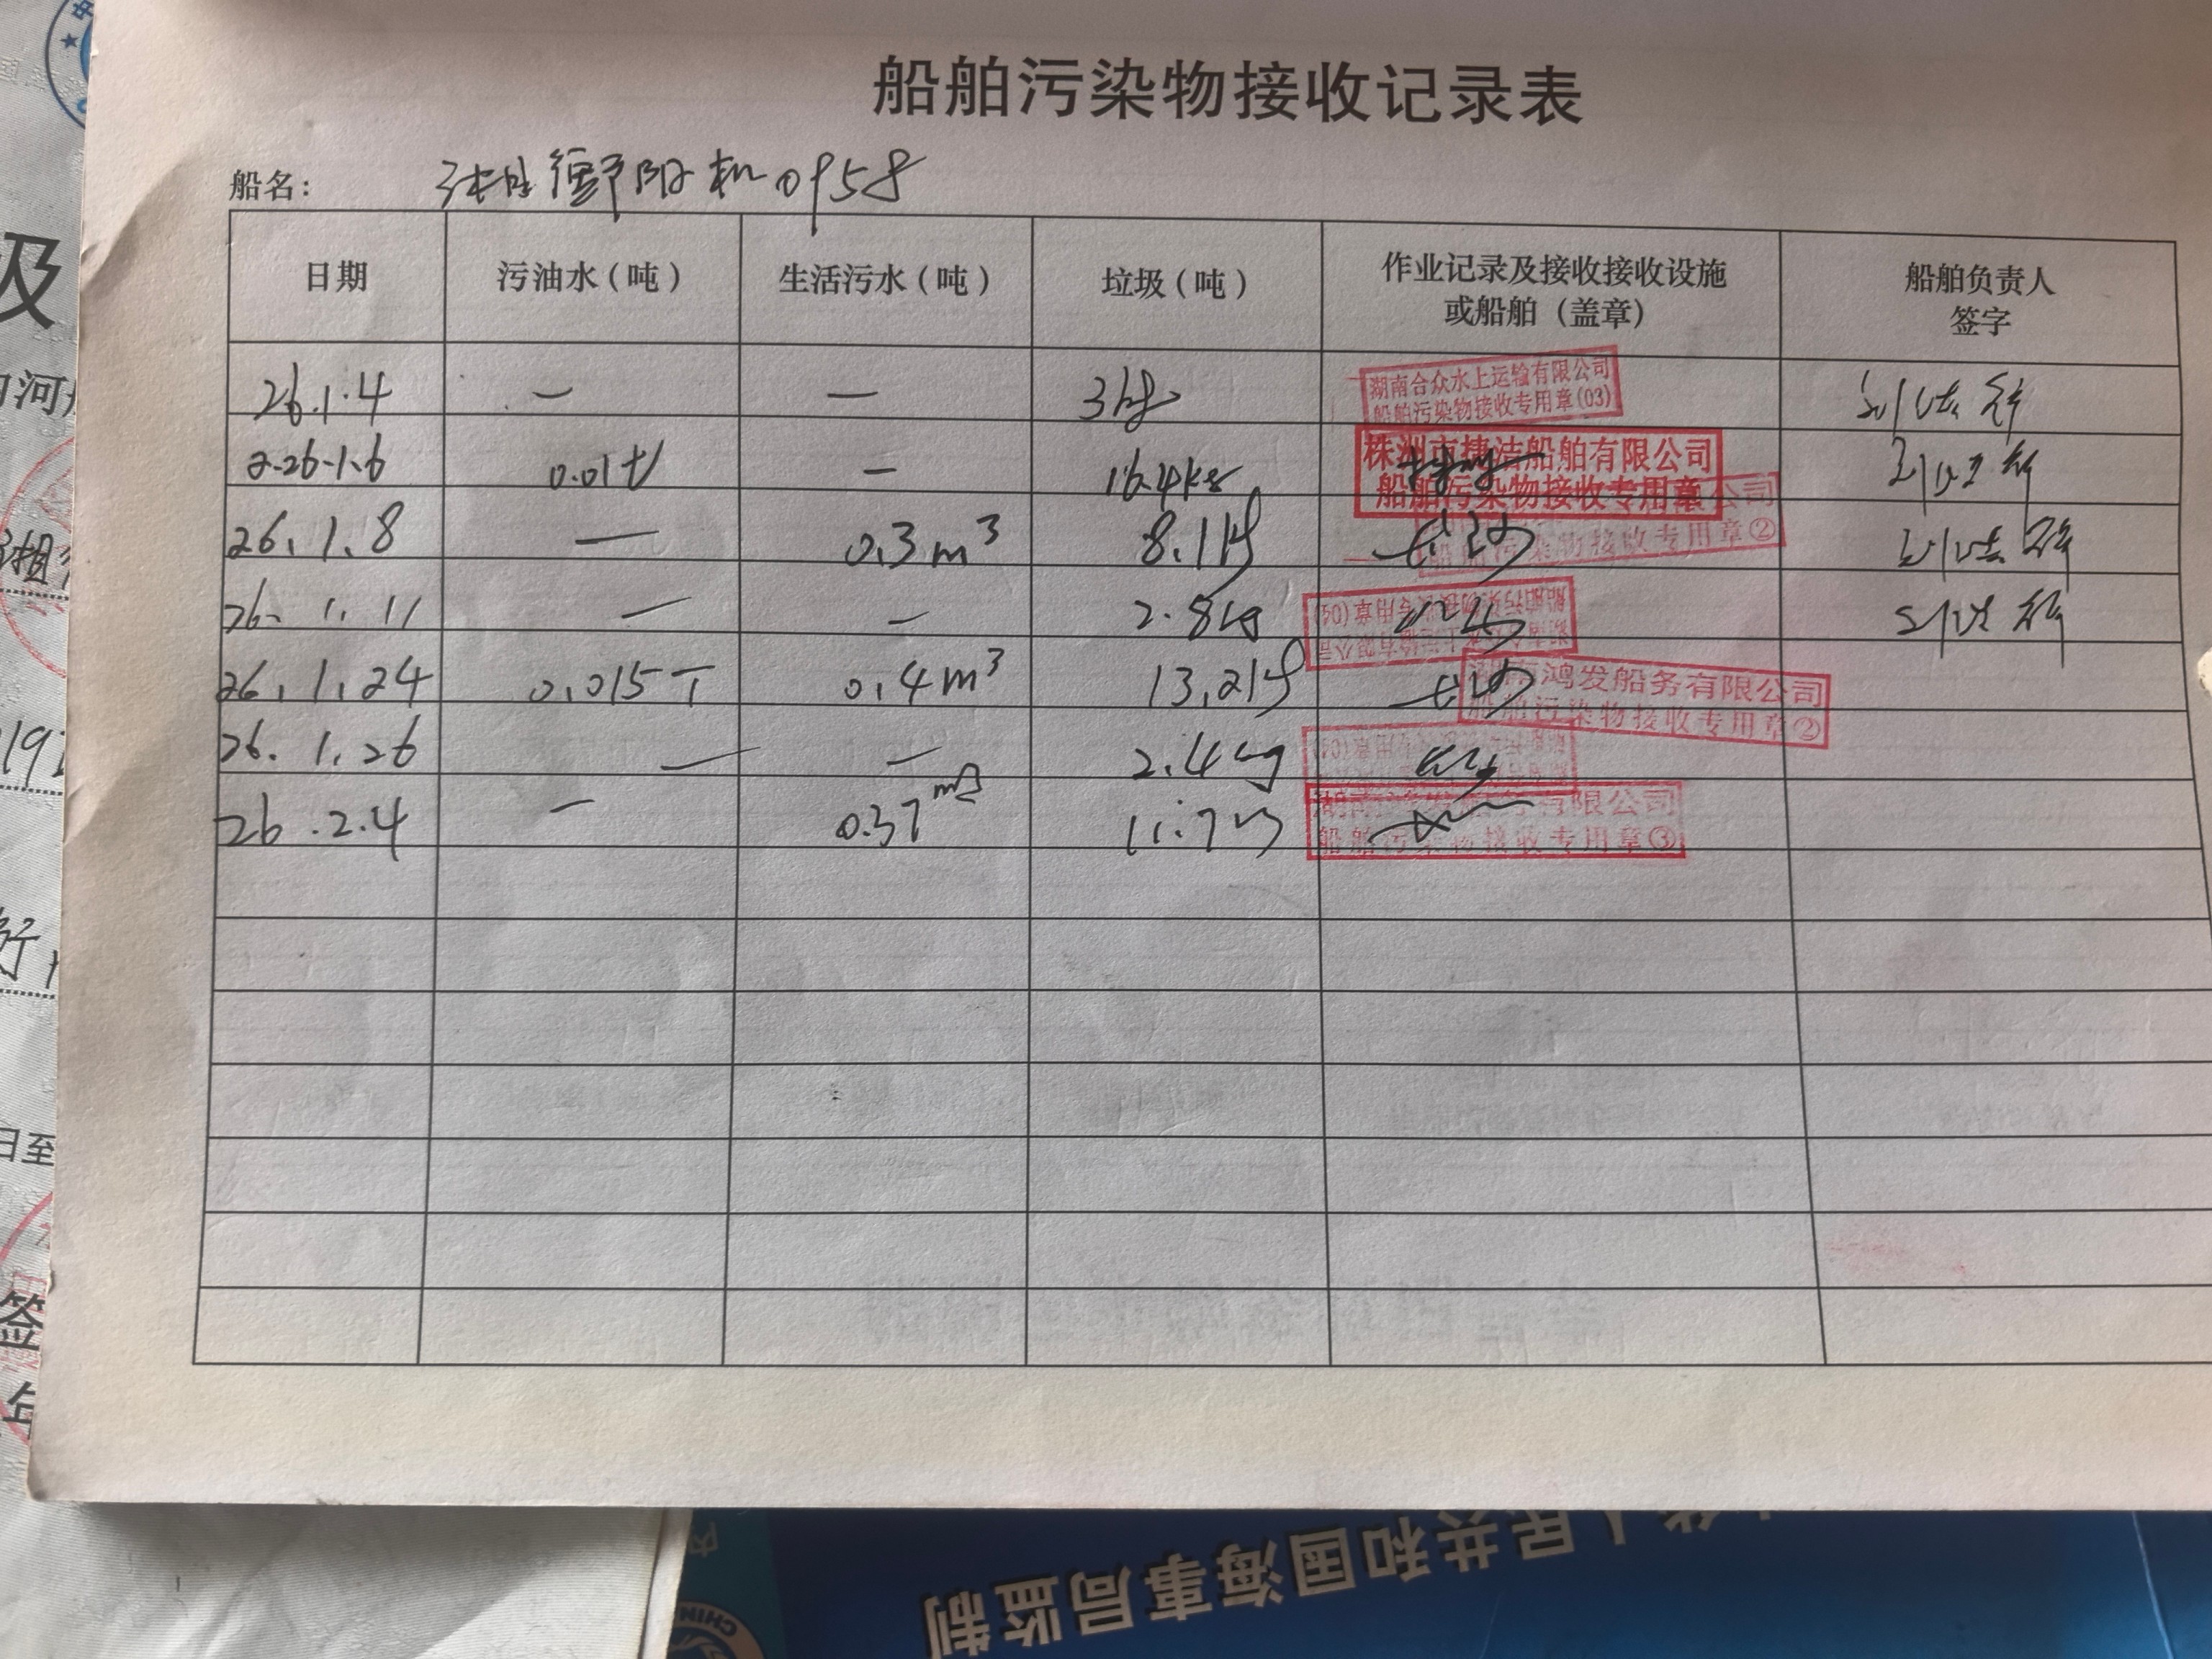 船舶污染物接收记录表
船名: 衡阳机0958
日期 污油水(吨) 生活污水(吨) 垃圾(吨) 作业记录及接收接收设施或船舶(盖章) 船舶负责人签字
26.1.4 — — 3kg 湖南合众水上运输有限公司 船舶污染物接收专用章(03)
26.1.6 0.01t — 16.4kg 株洲市捷洁船舶有限公司 船舶污染物接收专用章
26.1.8 — 0.3m³ 8.1kg 公司 船舶污染物接收专用章②
26.1.11 — — 2.8kg
26.1.24 0.015T 0.4m³ 13.2kg 鸿发船务有限公司 船舶污染物接收专用章②
26.1.26 — — 2.4kg
26.2.4 — 0.37m³ 11.7kg 有限公司 船舶污染物接收专用章③
级
日至
签
年
人民共和国海事局监制